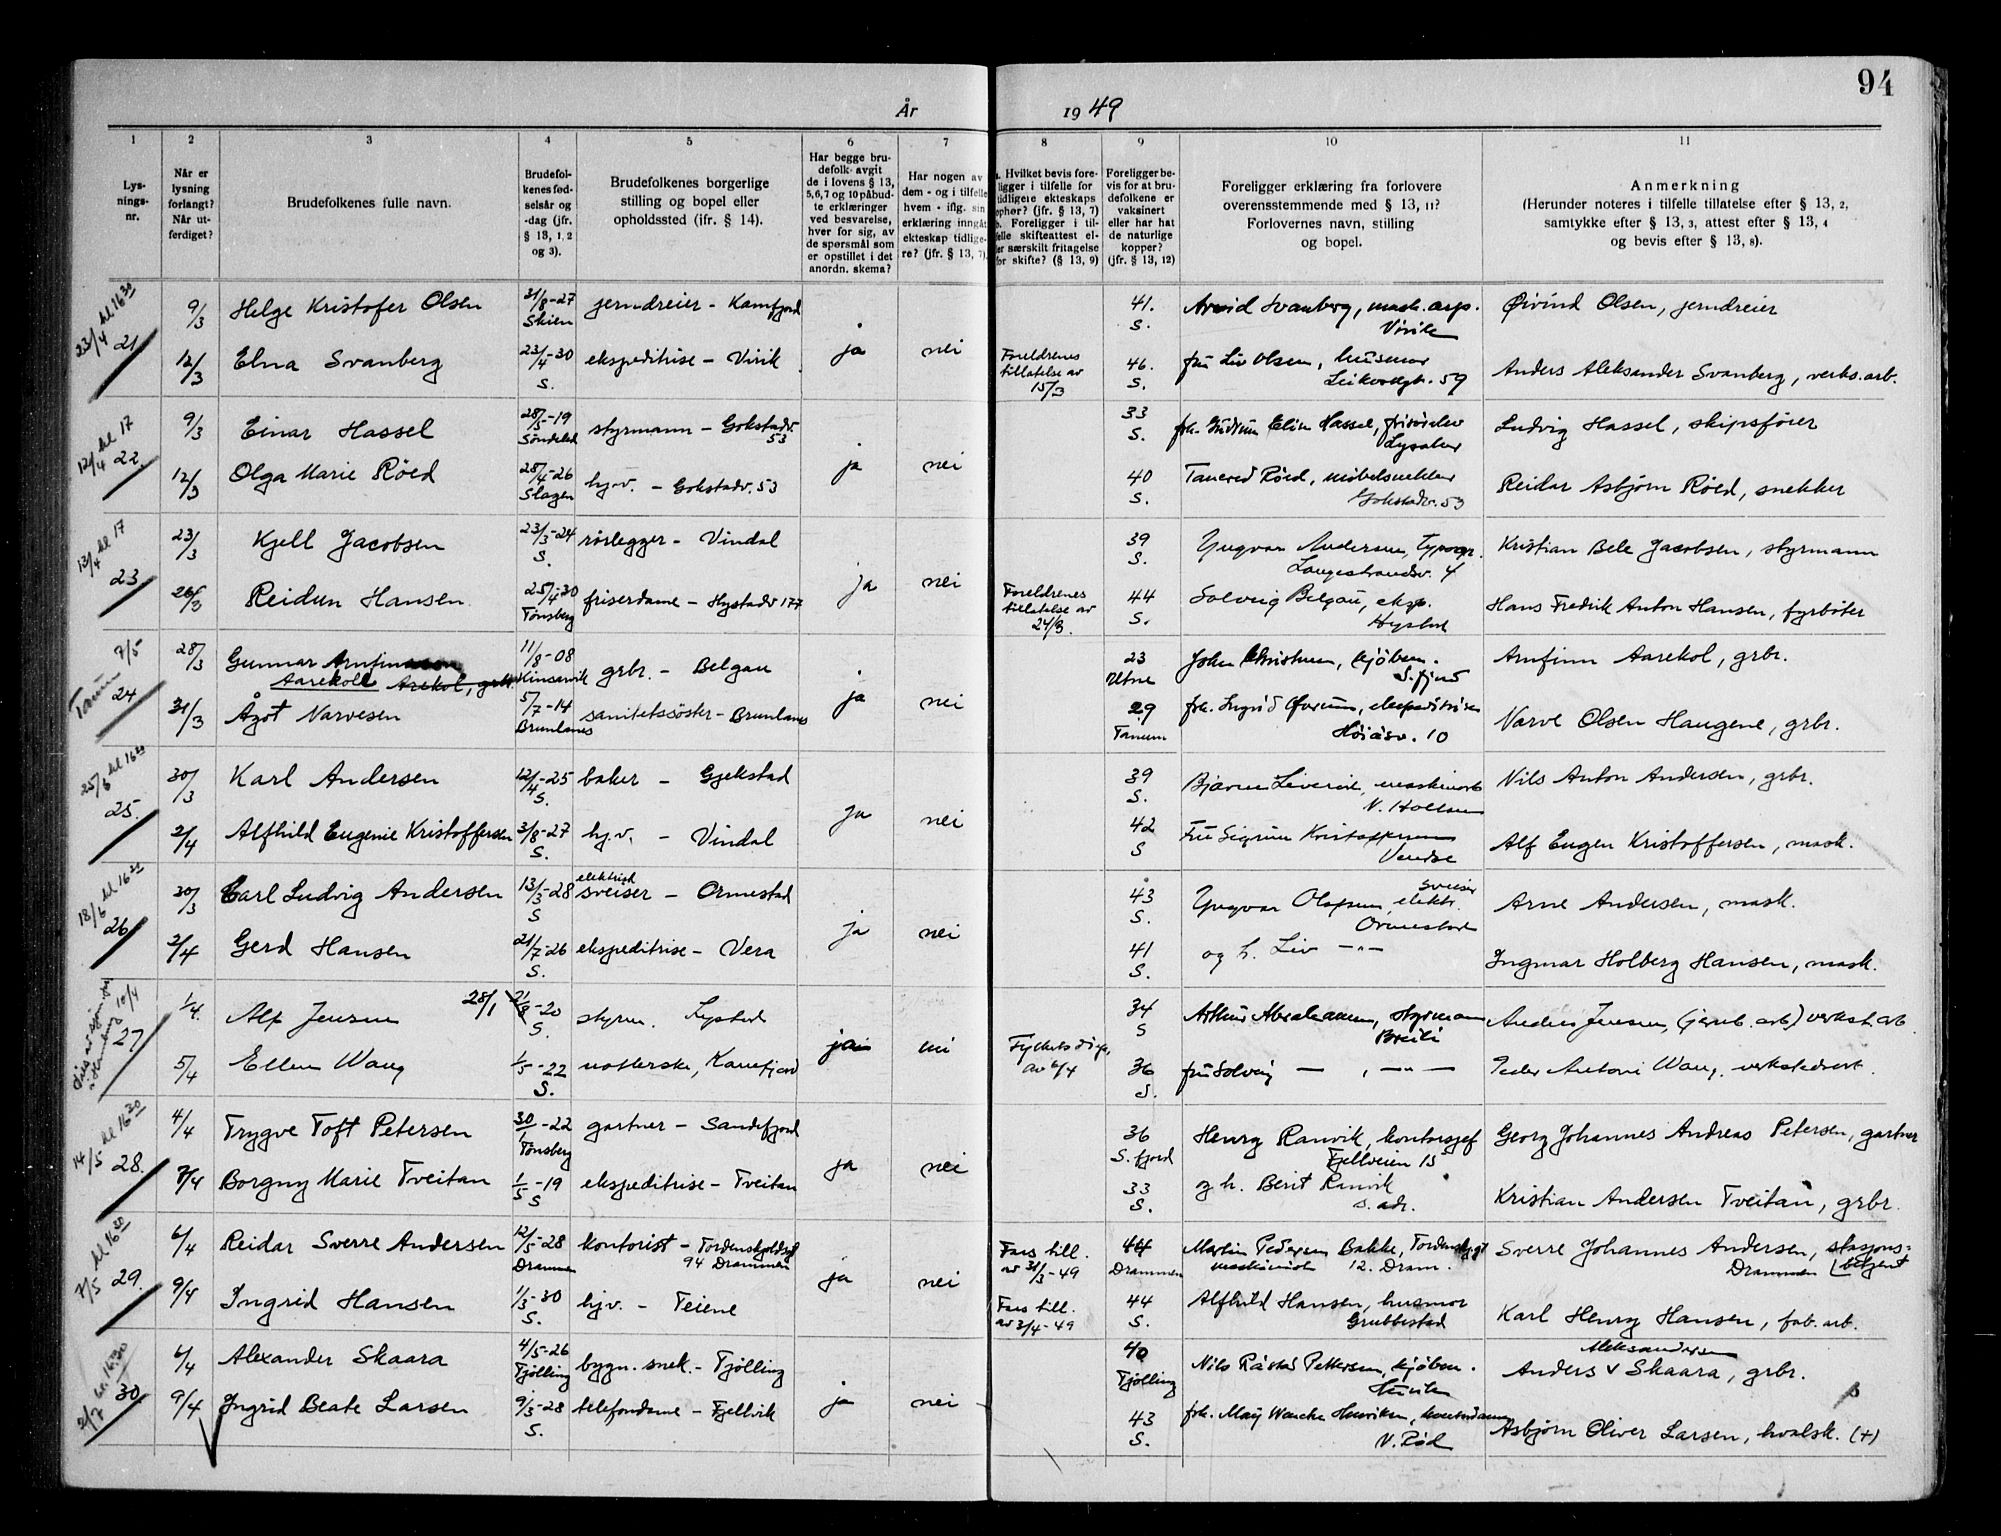 94
År 1949
1 2 3 4 5 6 7 8 9 10 11
Lys-
nings-
nr.
Når er
lysning
forlangt?
Når ut-
ferdiget?
Brudefolkenes fulle navn.
Brudefol-
kenes fød-
selsår og
-dag (jfr.
§ 13, 1, 2
og 3).
Brudefolkenes borgerlige
stilling og bopel eller
opholdssted (ifr. § 14).
Har begge bru-
defolk avgit
de i lovens § 13,
5,6,7 og 10 påbud-
te erklæringer
ved besvarelse,
hver for sig, av
de spørsmål som
er opstillet i det
anordn. skema?
Har nogen av
dem - og i tilfelle
hvem - iflg. sin
erklæring inngåt
ekteskap tidlige-
re? (jfr. § 13, 7).
a. Hvilket bevis fore-
ligger i tilfelle for
tidligere ekteskaps
ophør? (jfr. § 13, 7)
b. Foreligger i til-
felle skifteattest el-
ler særskilt fritagelse
for skifte? (§ 13, 9)
Foreligger be-
vis for at bru-
defolkene er
vaksinert
eller har hat
de naturlige
kopper?
(jfr. § 13, 12)
Foreligger erklæring fra forlovere
overensstemmende med § 13, 11?
Forlovernes navn, stilling
og bopel.
Anmerkning
(Herunder noteres i tilfelle tillatelse efter § 13, 2,
samtykke efter § 13, 3, attest efter § 13, 4
og bevis efter § 13, 8).
23/4 kl 16 30
21
9/3 Helge Kristofer Olsen 31/8-27 Skien jerndreier - Kamfjord 41. S. Arvid Svanberg, mask. arp. Virik Øivind Olsen, jerndreier
12/3 Elna Svanberg 23/4-30 S. ekspeditrise - Virik ja nei Foreldrenes tillatelse av 15/3 46. S. fru Liv Olsen, husmor 59 Anders Aleksander Svanberg, verks.arb.
12/4 kl 17
22
9/3 Einar Hassel 28/5-19 Søndeled styrmann - Gokstadv. 53 33 S. frk. Gudrun Elin Hassel, Lysaker Ludvig Hassel, skipsfører
12/3 Olga Marie Röed 28/4-26 Slagen hj.v. - Gokstadv. 53 ja nei 40 S. Tancred Röed, møbelsnekker Gokstadv. 53 Reidar Asbjørn Röed, snekker
13/4 kl 17
23
23/3 Kjell Jacobsen 23/3-24 S. rørlegger - Vindal 39 S. Yngvar Andersen, Typogr. Langestrandsv. 4 Kristian Bele Jacobsen, styrmann
26/3 Reidun Hansen 25/4-30 Tønsberg friserdame - Hystadv 177 ja nei Foreldrenes tillatelse av 24/3. 44 S. Solveig Belgau, eksp. Hystad Hans Fredrik Anton Hansen, fyrbøter
Tanum 7/5
24
28/3 Gunnar Aarekoll Arekol, grbr. 11/8-08 Kinsarvik grbr. - Belgau 23 Utne John Christensen, kjøbm. S.fjord Arnfinn Aarekol, grbr.
31/3 Ågot Narvesen 5/7-14 Brunlanes sanitetssøster - Brunlanes ja nei 29 Tanum frk. Ingrid ekspeditrise Höiåsv. 10 Narve Olsen Haugene, grbr.
25/6 kl 16 30
25.
30/3 Karl Andersen 12/4-25 S. baker - Gjekstad 39 S. Bjarne N. Nils Anton Andersen, grbr.
2/4 Alfhild Eugenie Kristoffersen 3/8-27 S. hj.v. - Vindal ja nei 42 S Fru Sigrun Kristoffersen Alf Eugen Kristoffersen, mask.
18/6 kl 16 30
26
30/3 Carl Ludvig Andersen 13/3-28 S elektrisk sveiser - Ormestad 43 S. Yngvar Olafsen, elektr. sveiser Ormestad Arne Andersen, mask.
2/4 Gerd Hansen 21/7-26 S. ekspeditrise - Vera ja nei 41 S. og h. Liv -"- Ingmar Holberg Hansen, mask.
10/4
27
1/4. Alf Jensen 28/1 21/8-20 S. styrm. Lystad 34 S Arthur Abrahamsen, styrmann Breili Anders Jensen, (jernb. arb) verkst. arb
5/4 Ellen Wang 1/5-22 S. Kamfjord ja nei av 6/4 36 S. fru Solveig — , —"— Peder Antoni Wang, verkstedsarb.
14/5 kl 16 30
28.
4/4 Trygve Toft Petersen 30/1-22 Tønsberg gartner - Sandefjord 36 S. fjord Henry Ranvik, kontorsjef Fjellveien 15 Georg Johannes Andreas Petersen, gartner
7/4 Borgny Marie Tveitan 1/5-19 S ekspeditrise - Tveitan ja nei 33 S. og h. Berit Ranvik s. adr. Kristian Andersen Tveitan, grbr.
7/5 kl 16 30
29.
6/4 Reidar Sverre Andersen 12/5-28 Drammen kontorist - Tordenskjoldsgt 94 Drammen Fars till. av 31/3-49 44 Drammen Martin Pedersen Bakke, Tordenskj.gt maskinist 12. Dram. Sverre Johannes Andersen, stasjons- Drammen betjent
9/4 Ingrid Hansen 1/3-30 S. hj.v. - Teiene ja nei Fars till. av 3/4-49 44 S. Alfhild Hansen, husmor Grubbestad Karl Henry Hansen, fab. arb.
2/7 kl. 16.30
30
6/4 Alexander Skaara 4/5-26 Tjølling bygn. snek. - Tjølling 40 Tjølling Nils Råstad Pettersen, kjøbm. Aleksandersen Anders v Skaara, grbr.
9/4 Ingrid Beate Larsen 9/3-28 S. telefondame - Fjellvik ja nei 43 S. frk. May Wenche Henriksen, kontordame N. Röd Asbjørn Oliver Larsen, hvalsk. (+)